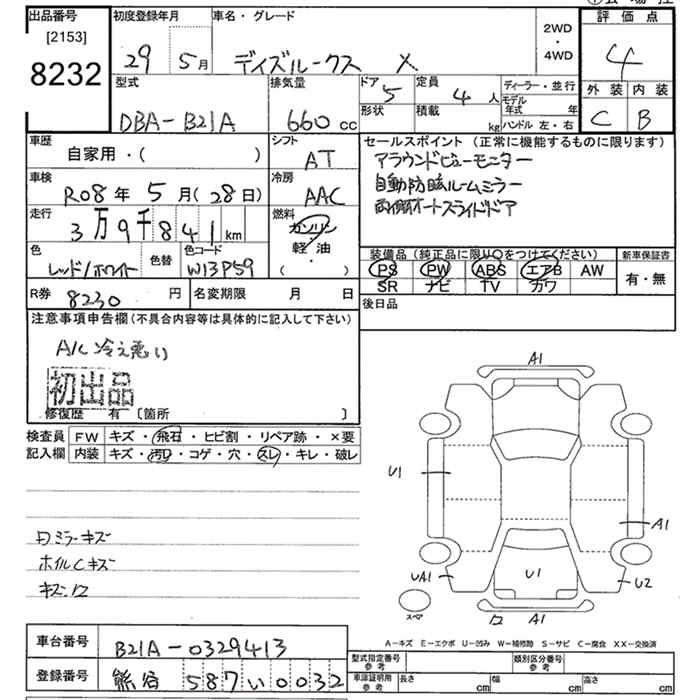 出品番号
[2153]
8232
初度登録年月
29 5月
車名・グレード
デイズルークス X
2WD
・
4WD
評価点
4
型式
DBA-B21A
排気量
660 cc
ドア
5
定員
4 人
ディーラー・並行
モデル年式 年
形状
積載
kg
ハンドル 左・右
外装 内装
C B
車歴
自家用・( )
シフト
AT
セールスポイント(正常に機能するものに限ります)
アラウンドビューモニター
自動防眩ルームミラー
両側オートスライドドア
車検
R08年 5月(28日)
冷房
AAC
走行
3万9千841km
燃料
ガソリン
軽・油
( )
色
レッド/ホワイト
色替
色コード
W13P59
装備品(純正品に限り○をつけてください)
PS PW ABS エアB AW
SR ナビ TV カワ
新車保証書
有・無
R券 8230 円
名変期限 月 日
後日品
注意事項申告欄(不具合内容等は具体的に記入して下さい)
A/C 冷え悪い
初出品
修復歴 有 [箇所 ]
検査員
記入欄
FW キズ・飛石・ヒビ割・リペア跡・×要
内装 キズ・汚レ・コゲ・穴・スレ・キレ・破レ
ミラーキズ
ホイルCキズ
キズ・ワ
A1
U1
A1
UA1
U1
U2
スペア
ワ A1
A－キズ E－エクボ U－凹み W－補修跡 S－サビ C－腐食 XX－交換済
車台番号
B21A-0329413
登録番号
熊谷 587 い 0032
型式指定番号
参考
類別区分番号
参考
車庫証明用
参考
長さ cm
幅 cm
高さ cm